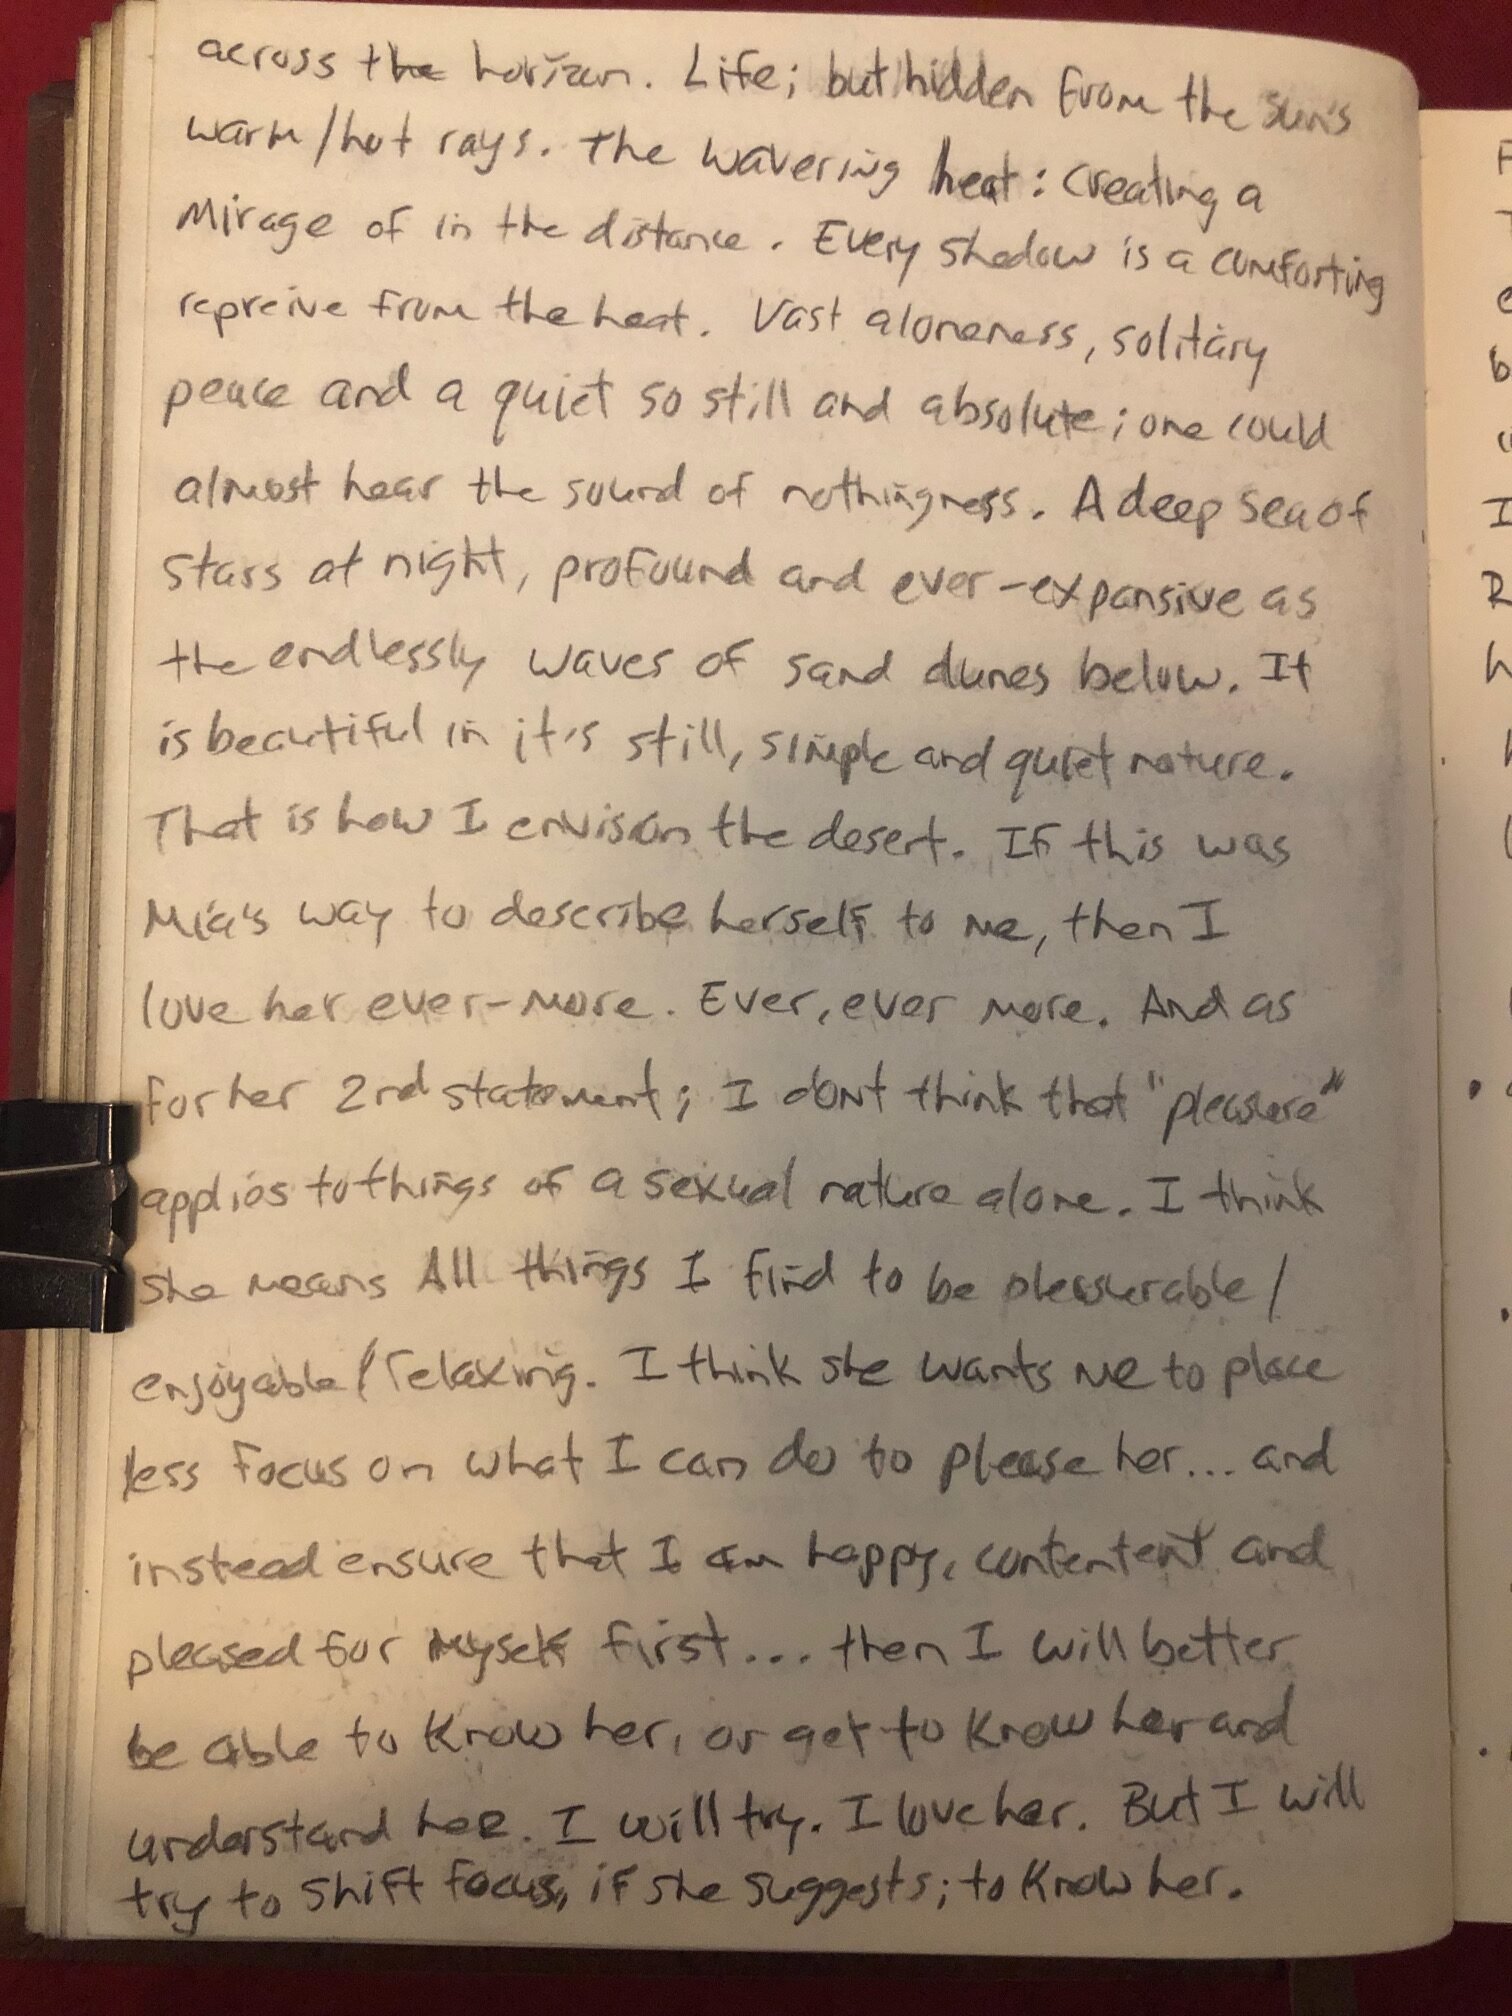 across the horizon. Life; but hidden from the sun's
warm/hot rays. The wavering heat: creating a
mirage of in the distance. Every shadow is a comforting
repreive from the heat. Vast aloneness, solitary
peace and a quiet so still and absolute; one could
almost hear the sound of nothingness. A deep sea of
stars at night, profound and ever-expansive as
the endlessly waves of sand dunes below. It
is beautiful in it's still, simple and quiet nature.
That is how I envision the desert. If this was
Mia's way to describe herself to me, then I
love her ever-more. Ever, ever more. And as
for her 2nd statement; I dont think that "pleasure"
applies to things of a sexual nature alone. I think
she means All things I find to be pleasurable/
enjoyable/relaxing. I think she wants me to place
less focus on what I can do to please her... and
instead ensure that I am happy, contentent and
pleased for myself first... then I will better
be able to know her, or get to know her and
understand her. I will try. I love her. But I will
try to shift focus, if she suggests; to know her.
F
T
e
b
I
R
h